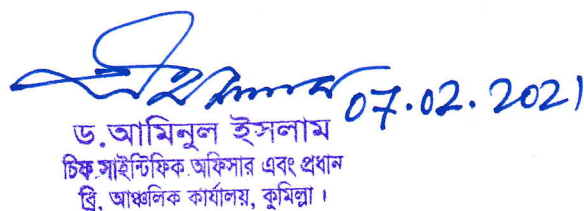 07.02.2021
ড.আমিনুল ইসলাম
চিফ সাইন্টিফিক অফিসার এবং প্রধান
ব্রি, আঞ্চলিক কার্যালয়, কুমিল্লা।